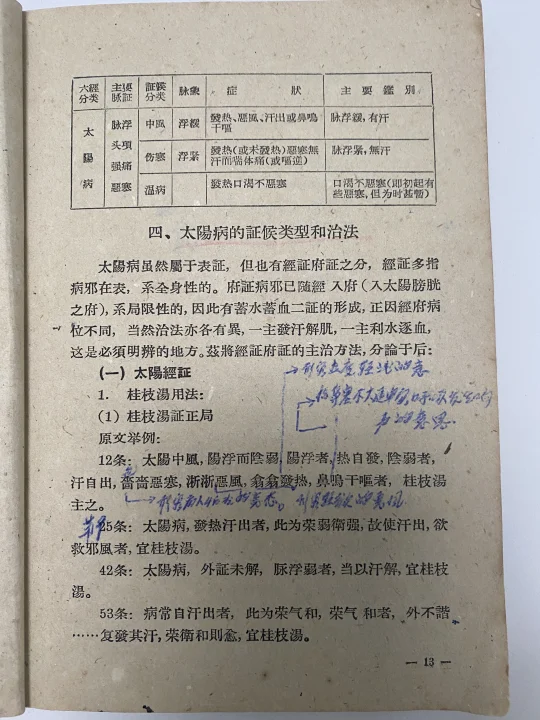 六經分类 主要脉証 証候分类 脉象 症 狀 主 要 鑑 別
太陽病 脉浮 头項 强痛 惡寒
中風 浮緩 發热、惡風、汗出或鼻鳴干嘔 脉浮緩,有汗
伤寒 浮紧 發热(或未發热)惡寒無汗而喘体痛(或嘔逆) 脉浮紧,無汗
温病 發热口渴不惡寒 口渴不惡寒(即初起有些惡寒,但为时甚暫)
四、太陽病的証候类型和治法
太陽病虽然屬于表証,但也有經証府証之分,經証多指
病邪在表,系全身性的。府証病邪已随經入府(入太陽膀胱
之府),系局限性的,因此有蓄水蓄血二証的形成,正因經府病
位不同,当然治法亦各有異,一主發汗解肌,一主利水逐血,
这是必須明辨的地方。茲將經証府証的主治方法,分論于后:
(一)太陽經証
1. 桂枝湯用法:
(1)桂枝湯証正局
原文举例:
12条:太陽中風,陽浮而陰弱,陽浮者,热自發,陰弱者,
汗自出,嗇嗇惡寒,淅淅惡風,翕翕發热,鼻鳴干嘔者,桂枝湯
主之。
95条:太陽病,發热汗出者,此为荣弱衛强,故使汗出,欲
救邪風者,宜桂枝湯。
42条:太陽病,外証未解,脉浮弱者,当以汗解,宜桂枝
湯。
53条:病常自汗出者,此为荣气和,荣气和者,外不諧
……复發其汗,荣衛和則愈,宜桂枝湯。
— 13 —